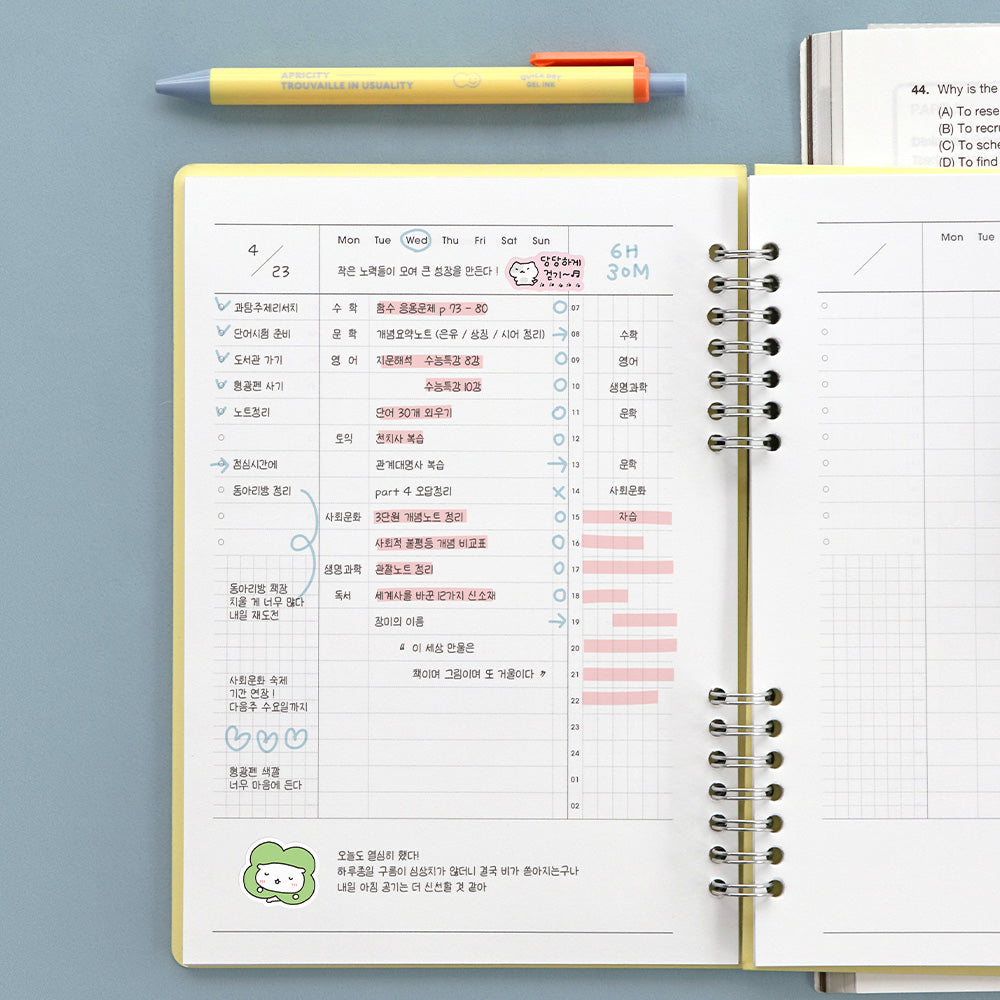 APRICITY
TROUVAILLE IN USUALITY
QUICK DRY
GEL INK
44. Why is the
(A) To rese
(B) To recru
(C) To sche
(D) To find
4 / 23
Mon Tue Wed Thu Fri Sat Sun
6H
30M
작은 노력들이 모여 큰 성장을 만든다!
당당하게
걷기~♬
과탐주제리서치
단어시험 준비
도서관 가기
형광펜 사기
노트정리
점심시간에
동아리방 정리
동아리방 책장
치울 게 너무 많다
내일 재도전
사회문화 숙제
기간 연장!
다음주 수요일까지
형광펜 색깔
너무 마음에 든다
수학 함수 응용문제 p 73 - 80
문학 개념요약노트 (은유 / 상징 / 시어 정리)
영어 지문해석 수능특강 8강
수능특강 10강
단어 30개 외우기
토익 전치사 복습
관계대명사 복습
part 4 오답정리
사회문화 3단원 개념노트 정리
사회적 불평등 개념 비교표
생명과학 관찰노트 정리
독서 세계사를 바꾼 12가지 신소재
장미의 이름
“ 이 세상 만물은
책이며 그림이며 또 거울이다 ”
07
08 수학
09 영어
10 생명과학
11 문학
12
13 문학
14 사회문화
15 자습
16
17
18
19
20
21
22
23
24
01
02
오늘도 열심히 했다!
하루종일 구름이 심상치가 않더니 결국 비가 쏟아지는구나
내일 아침 공기는 더 신선할 것 같아
/
Mon Tue